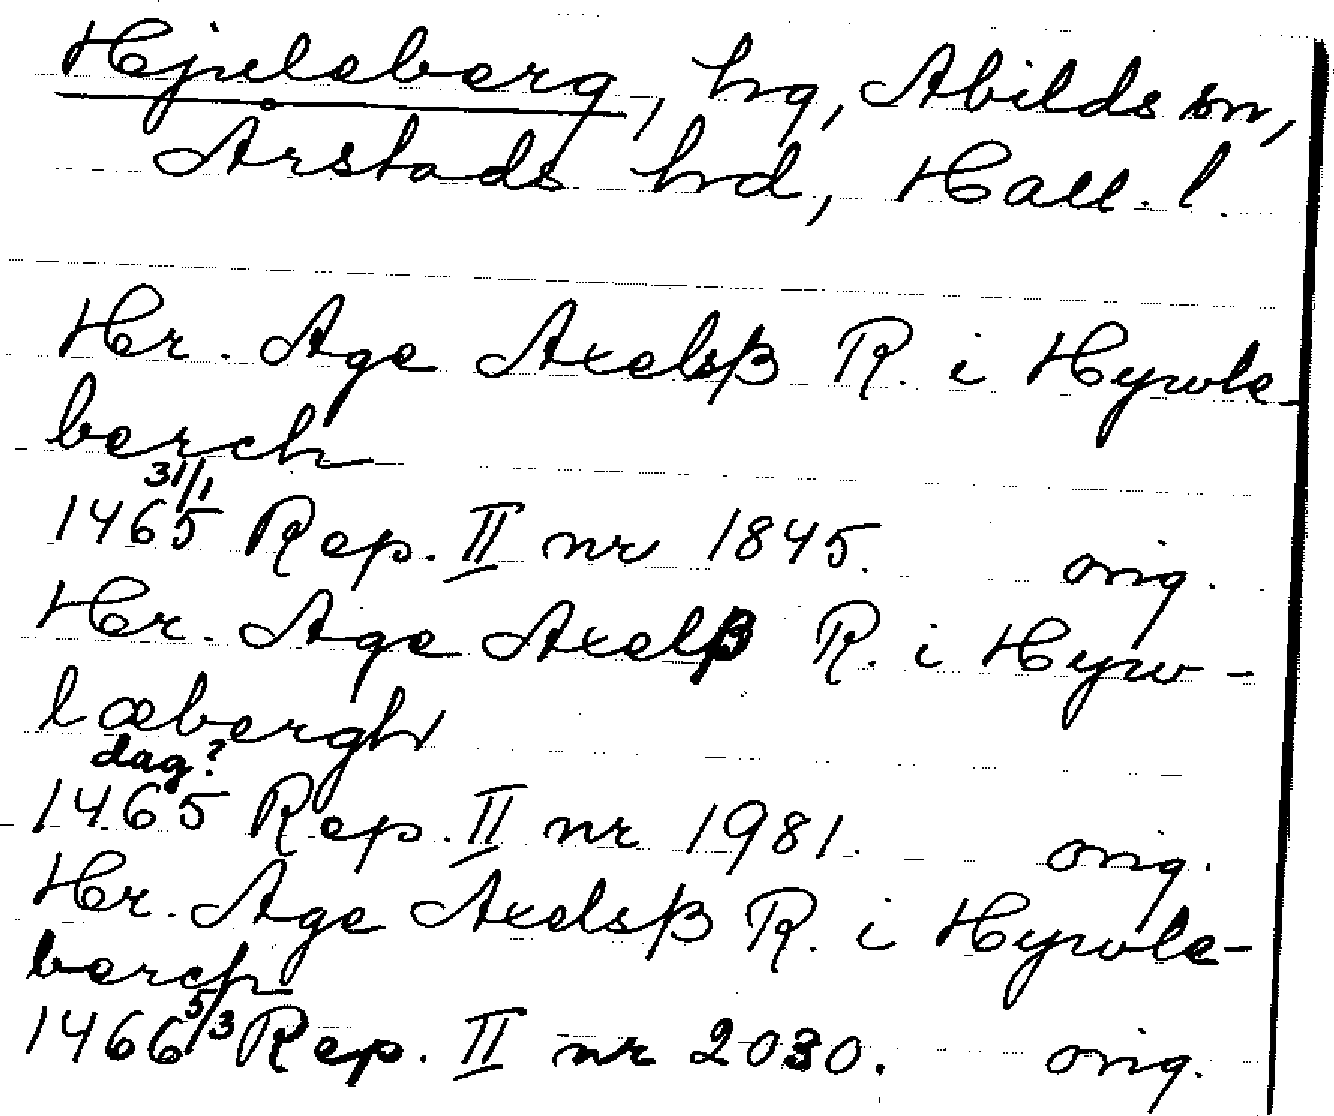 Hjuleberg, hg, Abilds sn,
Årstads hrd, Hall. l.
Hr. Age Axelsß R. i Hywle-
berch
1465 31/1 Rep. II nr 1845. orig.
Hr. Age Axelß R. i Hyw-
læbergh
1465 dag? Rep. II nr 1981. orig.
Hr. Age Axelsß R. i Hywle-
berch
1466 5/3 Rep. II nr 2030. orig.